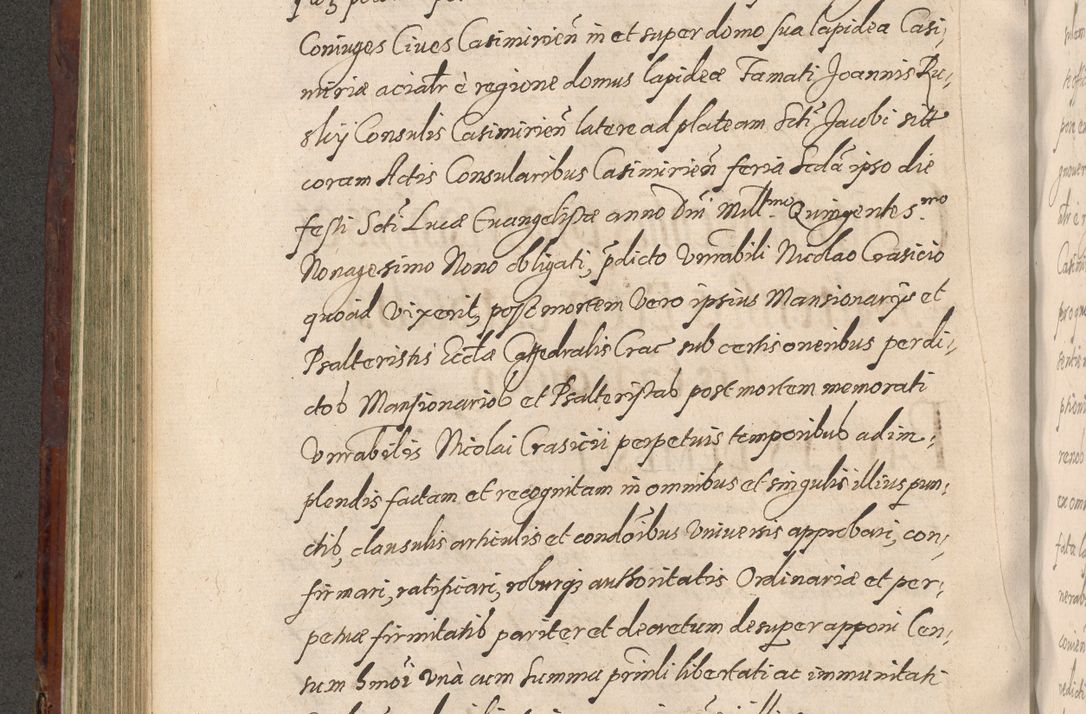 Coniuges Ciues Casimirien̄ in et super domo sua lapidea Casi,
miriæ aciatr̃ è regione domus lapideæ Famati Joannis Ru,
skij Consulis Casimirien̄ latere ad plateam Scti Jacobi sitt
coram Actis Consularibus Casimirien̄ feria Sec̃da ipso die
festi Scti Lucæ Euangelistæ anno Dn̄i Mill.mo Quingentes.mo
Nonagesimo Nono obligati, p̄dicto Vn̄rabili Nicolao Crasicio
quoad vixerit, post mortem vero ipsius Mansionarijs et
Psalteristis Eccl̃æ Cathedralis Crac sub certis oneribus per di,
ctos Mansionarios et Psalteristas post mortem memorati
Vn̄rabilis Nicolai Crasicii perpetuis temporibus adim,
plendis factam et recognitam in omnibus et singulis illius pun,
ctis, clausulis articulis et condõibus vniuersis approbari, con,
firmari, ratificari, roburq̃ authoritatis Ordinariæ et per,
petuæ firmitatis pariter et decretum desuper apponi Cen,
sum hmõi vnà cum summa prīnli libertati ac immunitati